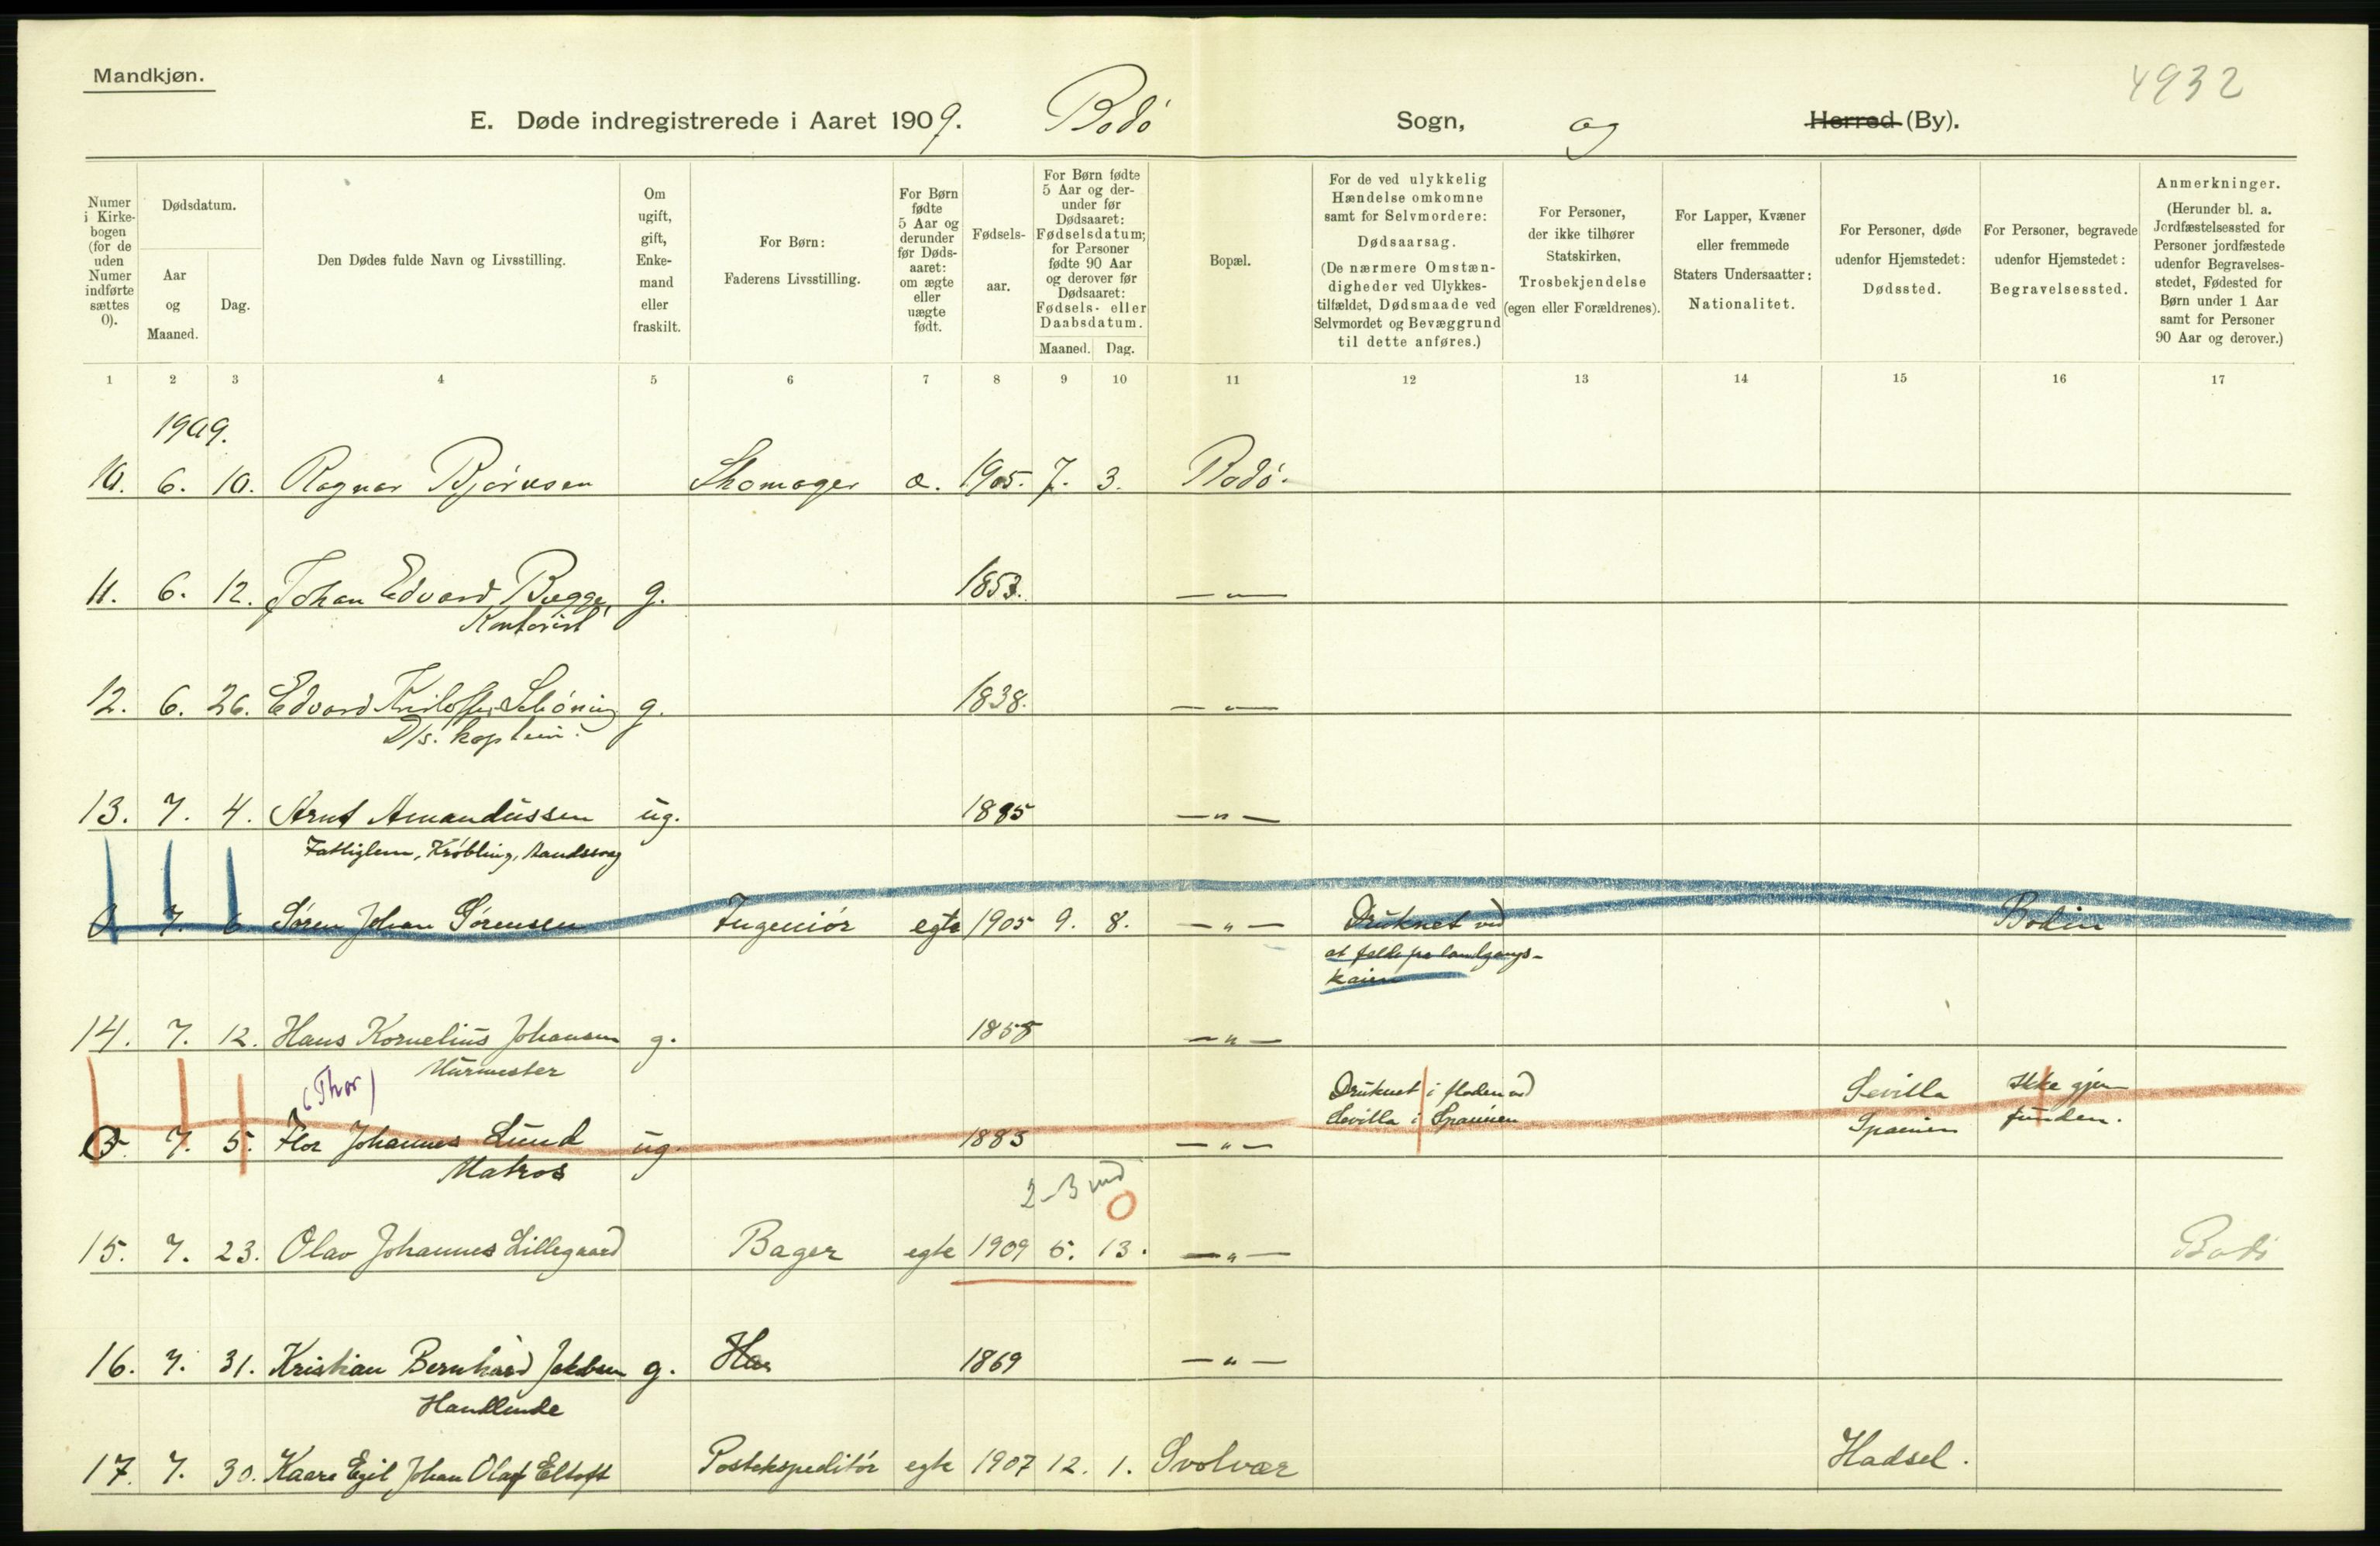 Mandkjøn.
4932
E. Døde indregistrerede i Aaret 1909. Bodø Sogn, og Herred (By).
Numer i Kirkebogen (for de uden Numer indførte sættes 0).
Dødsdatum.
Aar og Maaned.
Dag.
Den Dødes fulde Navn og Livsstilling.
Om ugift, gift, Enkemand eller fraskilt.
For Børn: Faderens Livsstilling.
For Børn fødte 5 Aar og derunder før Dødsaaret: om ægte eller uægte født.
Fødselsaar.
For Børn fødte 5 Aar og derunder før Dødsaaret: Fødselsdatum; for Personer fødte 90 Aar og derover før Dødsaaret: Fødsels- eller Daabsdatum.
Maaned. Dag.
Bopæl.
For de ved ulykkelig Hændelse omkomne samt for Selvmordere: Dødsaarsag. (De nærmere Omstændigheder ved Ulykkestilfældet, Dødsmaade ved Selvmordet og Bevæggrund til dette anføres.)
For Personer, der ikke tilhører Statskirken, Trosbekjendelse (egen eller Forældrenes).
For Lapper, Kvæner eller fremmede Staters Undersaatter: Nationalitet.
For Personer, døde udenfor Hjemstedet: Dødssted.
For Personer, begravede udenfor Hjemstedet: Begravelsessted.
Anmerkninger. (Herunder bl. a. Jordfæstelsessted for Personer jordfæstede udenfor Begravelsesstedet, Fødested for Børn under 1 Aar samt for Personer 90 Aar og derover.)
1 2 3 4 5 6 7 8 9 10 11 12 13 14 15 16 17
1909.
10. 6. 10. Ragnar Bjørnsen Skomager æ. 1905. 7. 3. Bodø.
11. 6. 12. Johan Edvard Bugge, g. 1853. — " —
Kontorist
12. 6. 26. Edvard Kristoffer Schöning g. 1838. — " —
D/s. kaptein.
13. 7. 4. Arnt Amandussen ug. 1895 — " —
Fattiglem, Krøbling,
0 7. 6 Søren Johan Sørensen Ingeniør egte 1905 9. 8. — " — Druknet ved Bodin
at falde fra landgangs-
kaien
14. 7. 12. Hans Kornelius Johansen g. 1858 — " —
Murmester
(Thor)
Druknet i floden ved Sevilla Ikke gjen-
0 7. 5. Flor Johannes Lund ug. 1883 — " — Sevilla i Spanien Spanien funden.
Matros
2-3 md
0
15. 7. 23. Olav Johannes Lillegaard Bager egte 1909 5. 13. — " — Bodø
16. 7. 31. Kristian Bernhard Jakobsen g. Han 1869 — " —
Handlende
17. 7. 30. Kaare Egil Johan Olaf Eltoft Postekspeditør egte 1907 12. 1. Svolvær Hadsel.